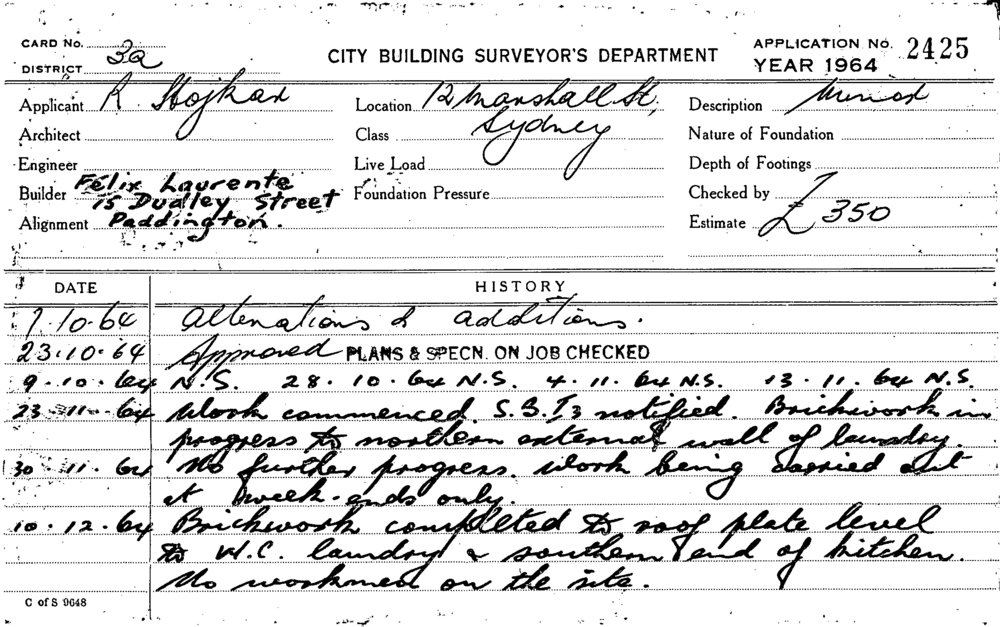 CARD No. 32
DISTRICT
CITY BUILDING SURVEYOR'S DEPARTMENT
APPLICATION No. 2425
YEAR 1964
Applicant R Stojkar
Location 12 Marshall St,
Sydney
Description Minor
Architect
Class
Nature of Foundation
Engineer
Live Load
Depth of Footings
Builder Felix Laurente
15 Dudley Street
Paddington.
Foundation Pressure
Checked by
Alignment
Estimate £350
DATE HISTORY
7.10.64 Alterations & additions.
23.10.64 Approved PLANS & SPECN. ON JOB CHECKED
9.10.64 N.S. 28.10.64 N.S. 4.11.64 N.S. 13.11.64 N.S.
23.11.64 Work commenced. notified. Brickwork in
progress to northern external wall of laundry.
30.11.64 No further progress. Work being carried out
at week-ends only.
10.12.64 Brickwork completed to roof plate level
to W.C. laundry & southern end of kitchen.
No workmen on the site.
C of S 9648